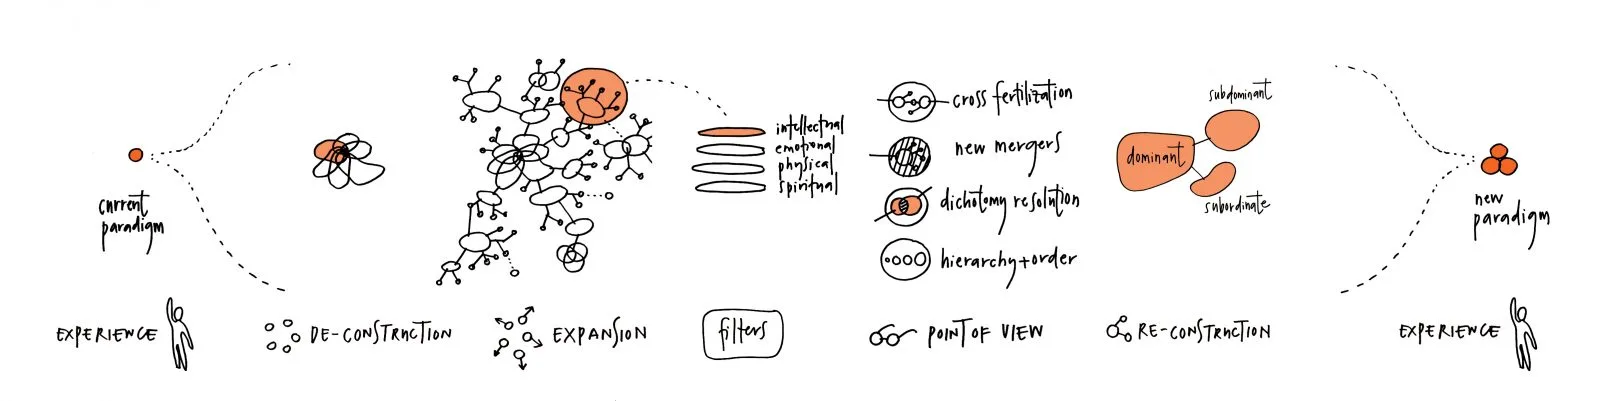 current
paradigm
intellectual
emotional
physical
spiritual
cross fertilization
new mergers
dichotomy resolution
hierarchy+order
dominant
subdominant
subordinate
new
paradigm
EXPERIENCE
DE-CONSTRUCTION
EXPANSION
filters
POINT OF VIEW
RE-CONSTRUCTION
EXPERIENCE